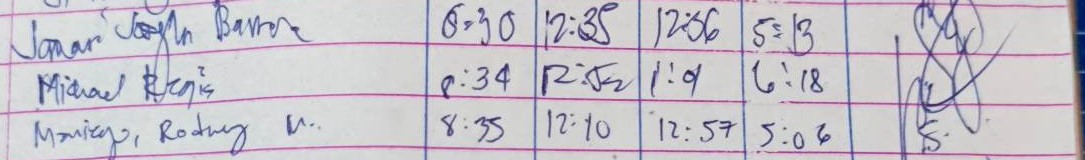 Joseph Barrera 8:30 12:35 12:56 5:13
Michael Regis 8:34 12:52 1:01 6:18
Maniego, Rodney M. 8:35 12:10 12:57 5:06